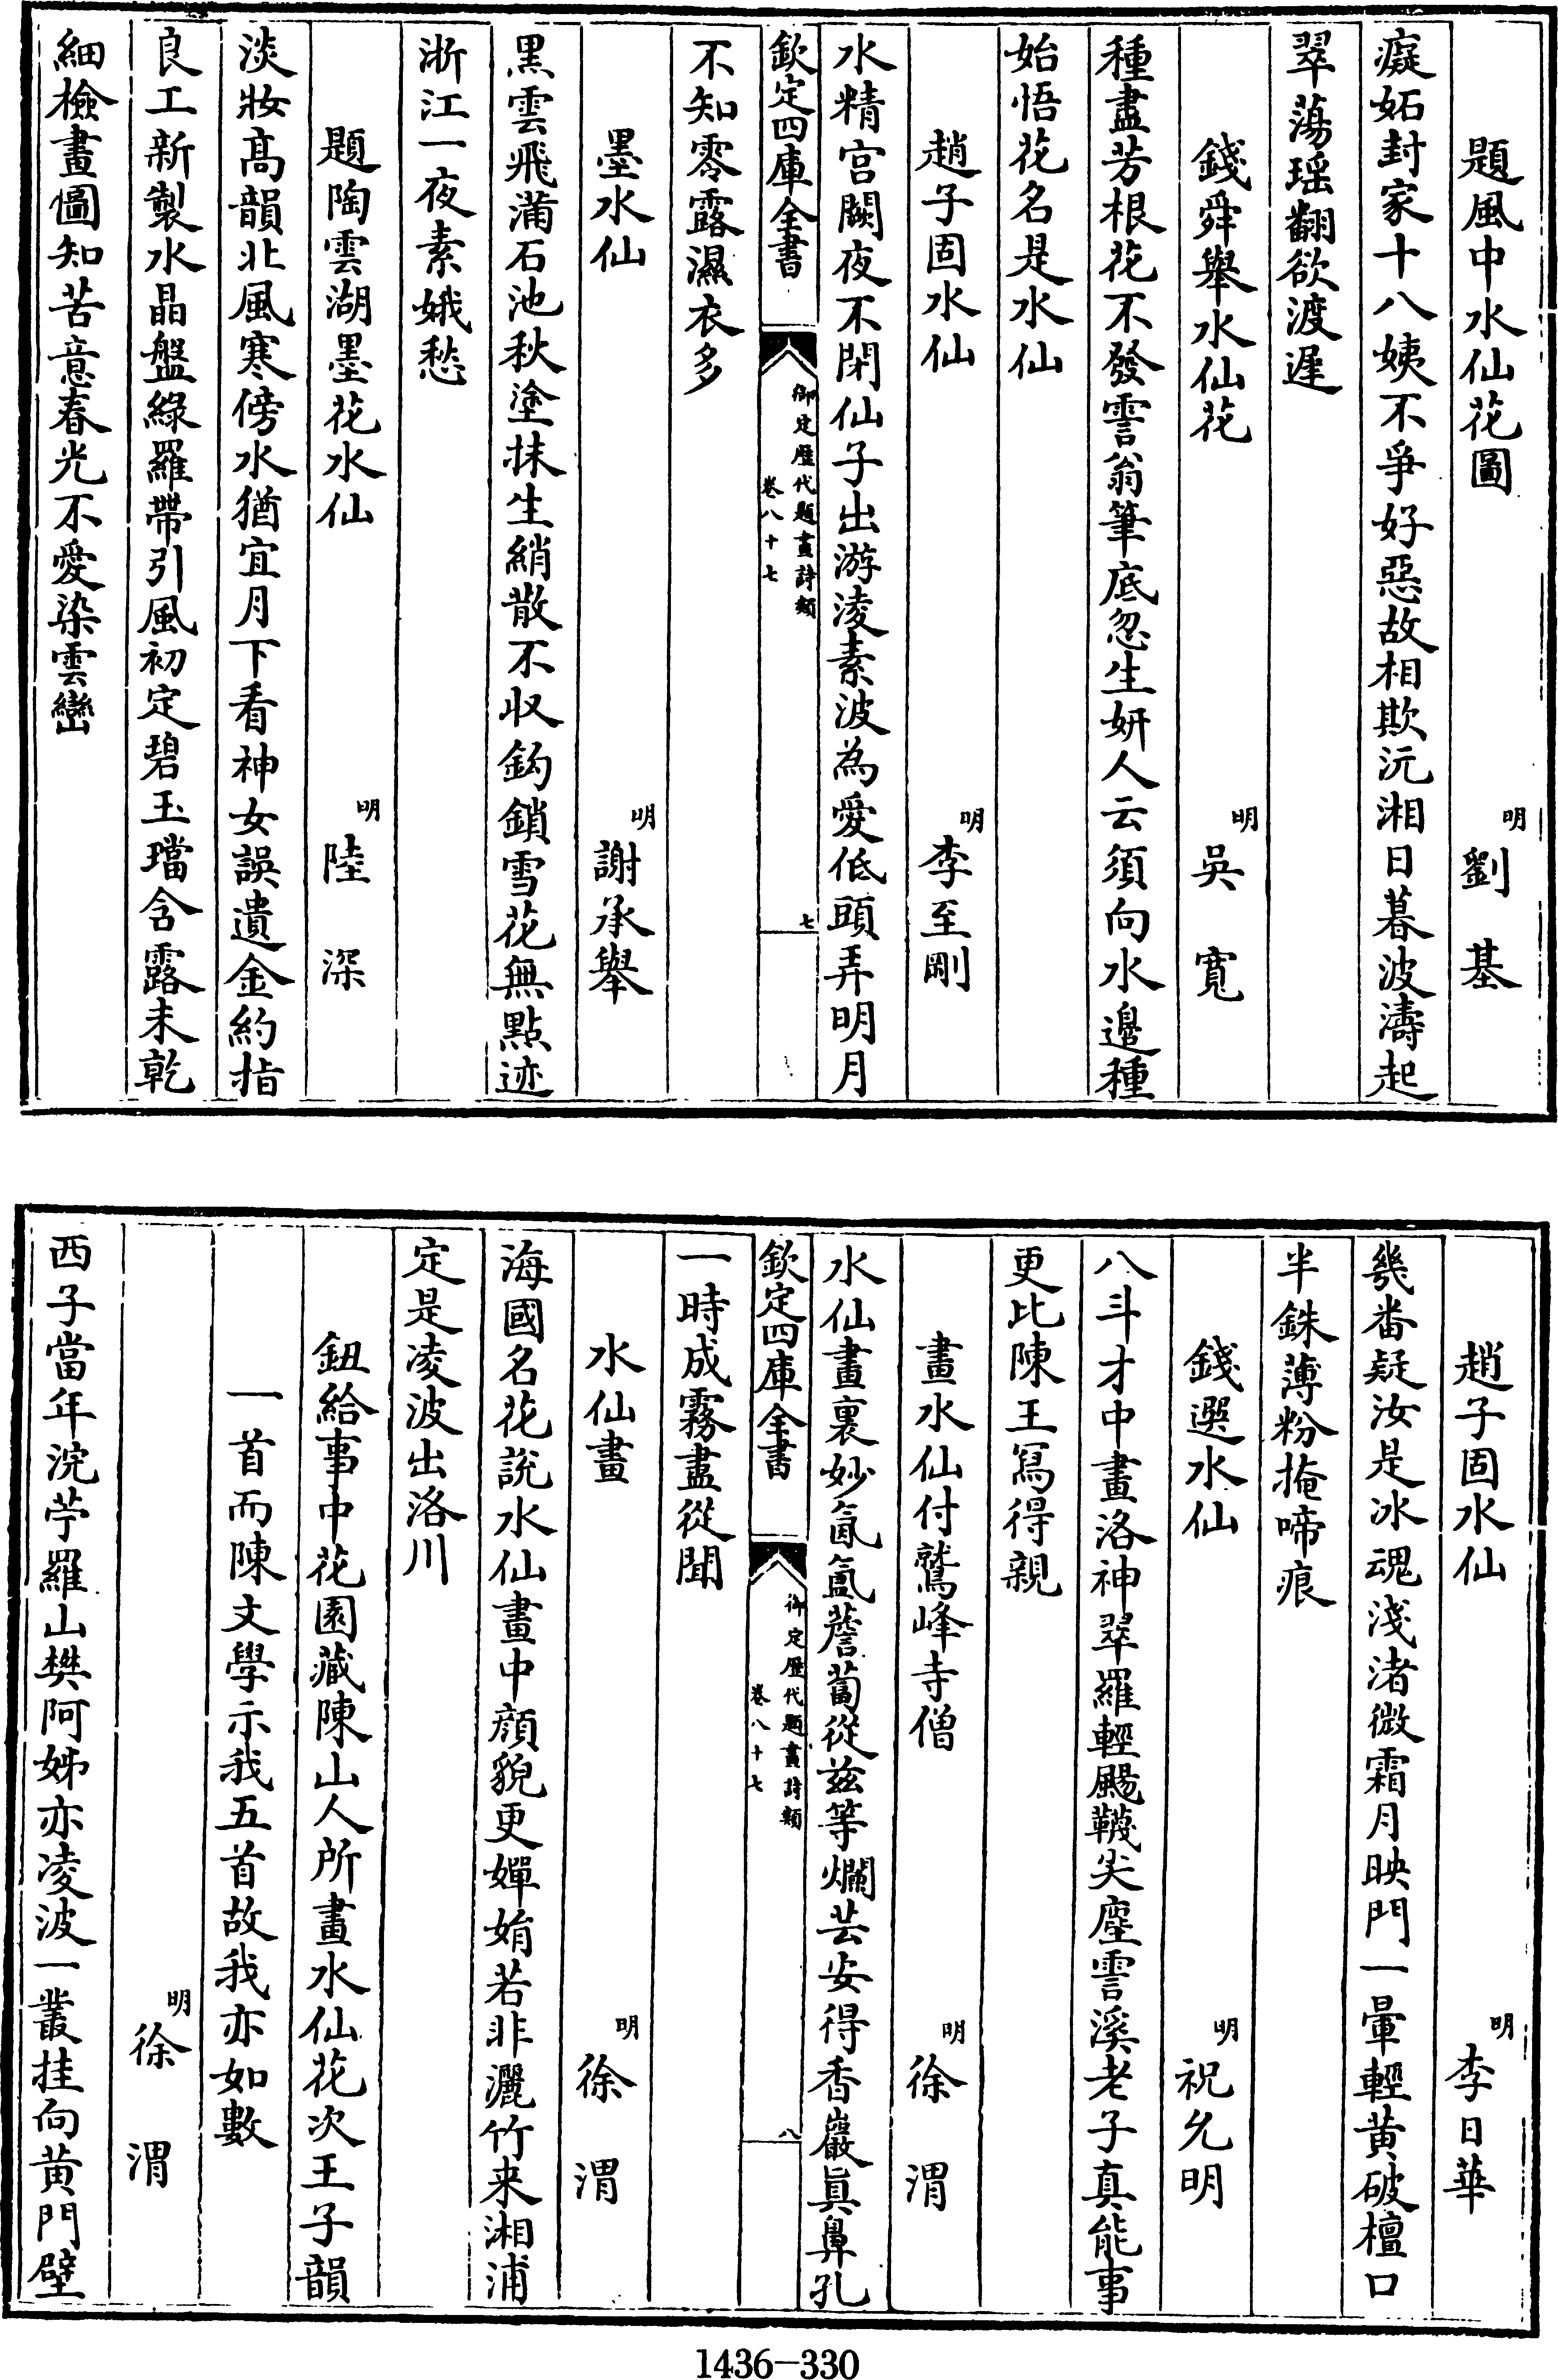 題風中水仙花圖　明劉基
癡妬封家十八姨不爭好惡故相欺沅湘日暮波濤起
翠蕩瑤翻欲渡遲
錢舜舉水仙花　明吳寬
種盡芳根花不發霅翁筆底忽生妍人云須向水邊種
始悟花名是水仙
趙子固水仙　明李至剛
水精宮闕夜不閉仙子出游淩素波為愛低頭弄明月
欽定四庫全書　御定歷代題畫詩類　卷八十七　七
不知零露濕衣多
墨水仙　明謝承舉
黑雲飛滿石池秋塗抹生綃散不收鈎鎖雪花無點迹
浙江一夜素娥愁
題陶雲湖墨花水仙　明陸深
淡妝高韻北風寒傍水猶宜月下看神女誤遺金約指
良工新製水晶盤綠羅帶引風初定碧玉璫含露未乾
細檢畫圖知苦意春光不愛染雲巒
趙子固水仙　明李日華
幾番疑汝是冰魂淺渚微霜月映門一暈輕黃破檀口
半銖薄粉掩啼痕
錢選水仙　明祝允明
八斗才中畫洛神翠羅輕颺韈尖塵霅溪老子真能事
更比陳王寫得親
畫水仙付鷲峰寺僧　明徐渭
水仙畫裏妙氤氳薝蔔從茲等爛芸安得香巖真鼻孔
欽定四庫全書　御定歷代題畫詩類　卷八十七　八
一時成霧盡從聞
水仙畫　明徐渭
海國名花說水仙畫中顔貌更嬋娟若非灑竹来湘浦
定是凌波出洛川
鈕給事中花園藏陳山人所畫水仙花次王子韻
一首而陳文學示我五首故我亦如數
明徐渭
西子當年浣苧羅山樊阿姊亦凌波一叢挂向黃門壁
1436-330